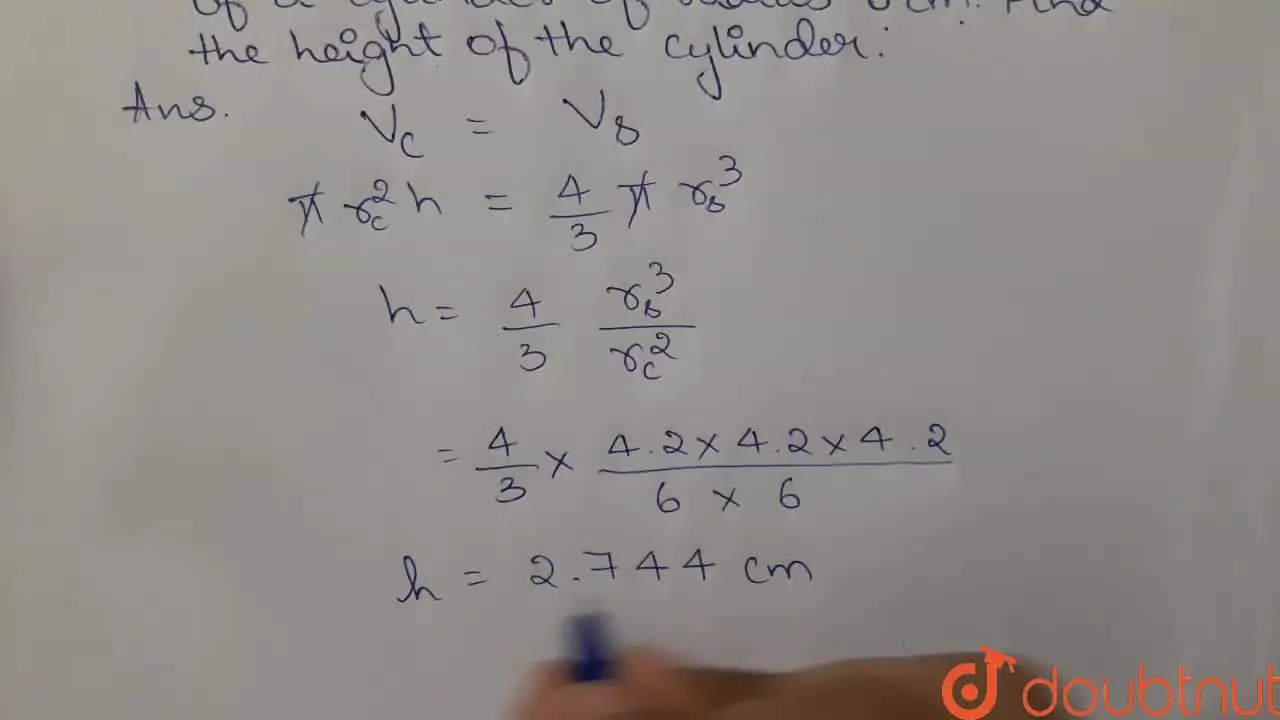 of a cylinder of radius 6 cm. Find
the height of the cylinder.
Ans. V_c = V_s
π r_c^2 h = 4/3 π r_s^3
h = 4/3 r_s^3/r_c^2
= 4/3 × 4.2 × 4.2 × 4.2 / 6 × 6
h = 2.744 cm
doubtnut